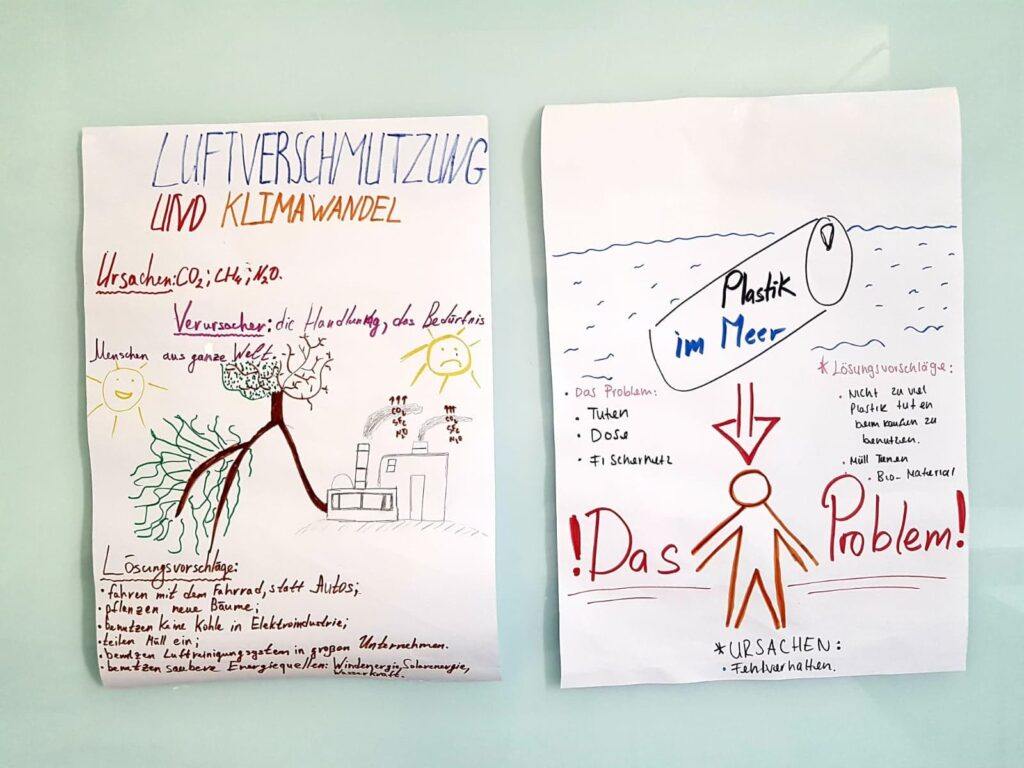 LUFTVERSCHMUTZUNG
UND KLIMAWANDEL
Ursachen: CO₂; CH₄; N₂O.
Verursacher: die Handlung, das Bedürfnis
Menschen aus ganze Welt.
↑↑↑
CO₂
SF₆
N₂O
↑↑↑
CO₂
SF₆
N₂O
Lösungsvorschläge:
• fahren mit dem Fahrrad, statt Autos;
• pflanzen neue Bäume;
• benutzen keine Kohle in Elektroindustrie;
• teilen Müll ein;
• benutzen Luftreinigungssystem in großen Unternehmen.
• benutzen saubere Energiequellen: Windenergie, Solarenergie,
Wasserkraft.
Plastik
im Meer
• Das Problem:
• Tuten
• Dose
• Fischernetz
* Lösungsvorschläge:
• Nicht zu viel
Plastik tuten
beim kaufen zu
benutzen.
• Müll
• Bio-Material
! Das Problem!
* URSACHEN:
• Fehlverhalten.